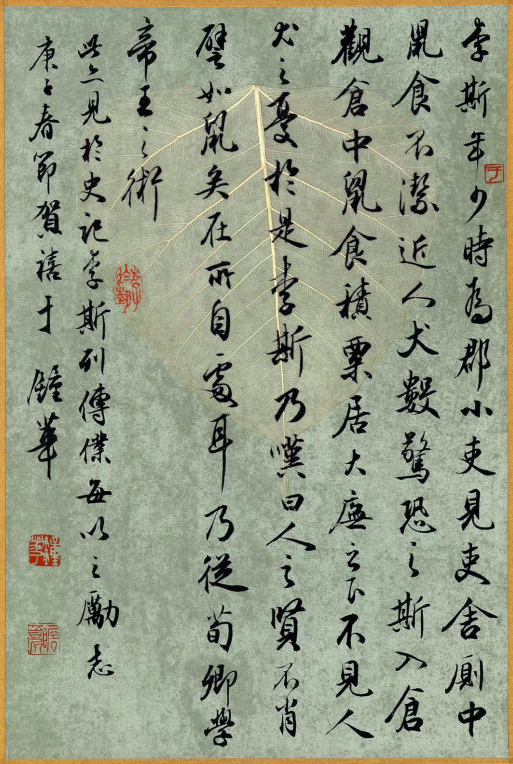 李斯年少時為郡小吏見吏舍厠中
鼠食不潔近人犬數驚恐之斯入倉
觀倉中鼠食積粟居大廡之下不見人
犬之憂於是李斯乃嘆曰人之賢不肖
譬如鼠矣在所自處耳乃從荀卿學
帝王之術
此見於史記李斯列傳僕每以之勵志
庚子春節賀禧于鐘華